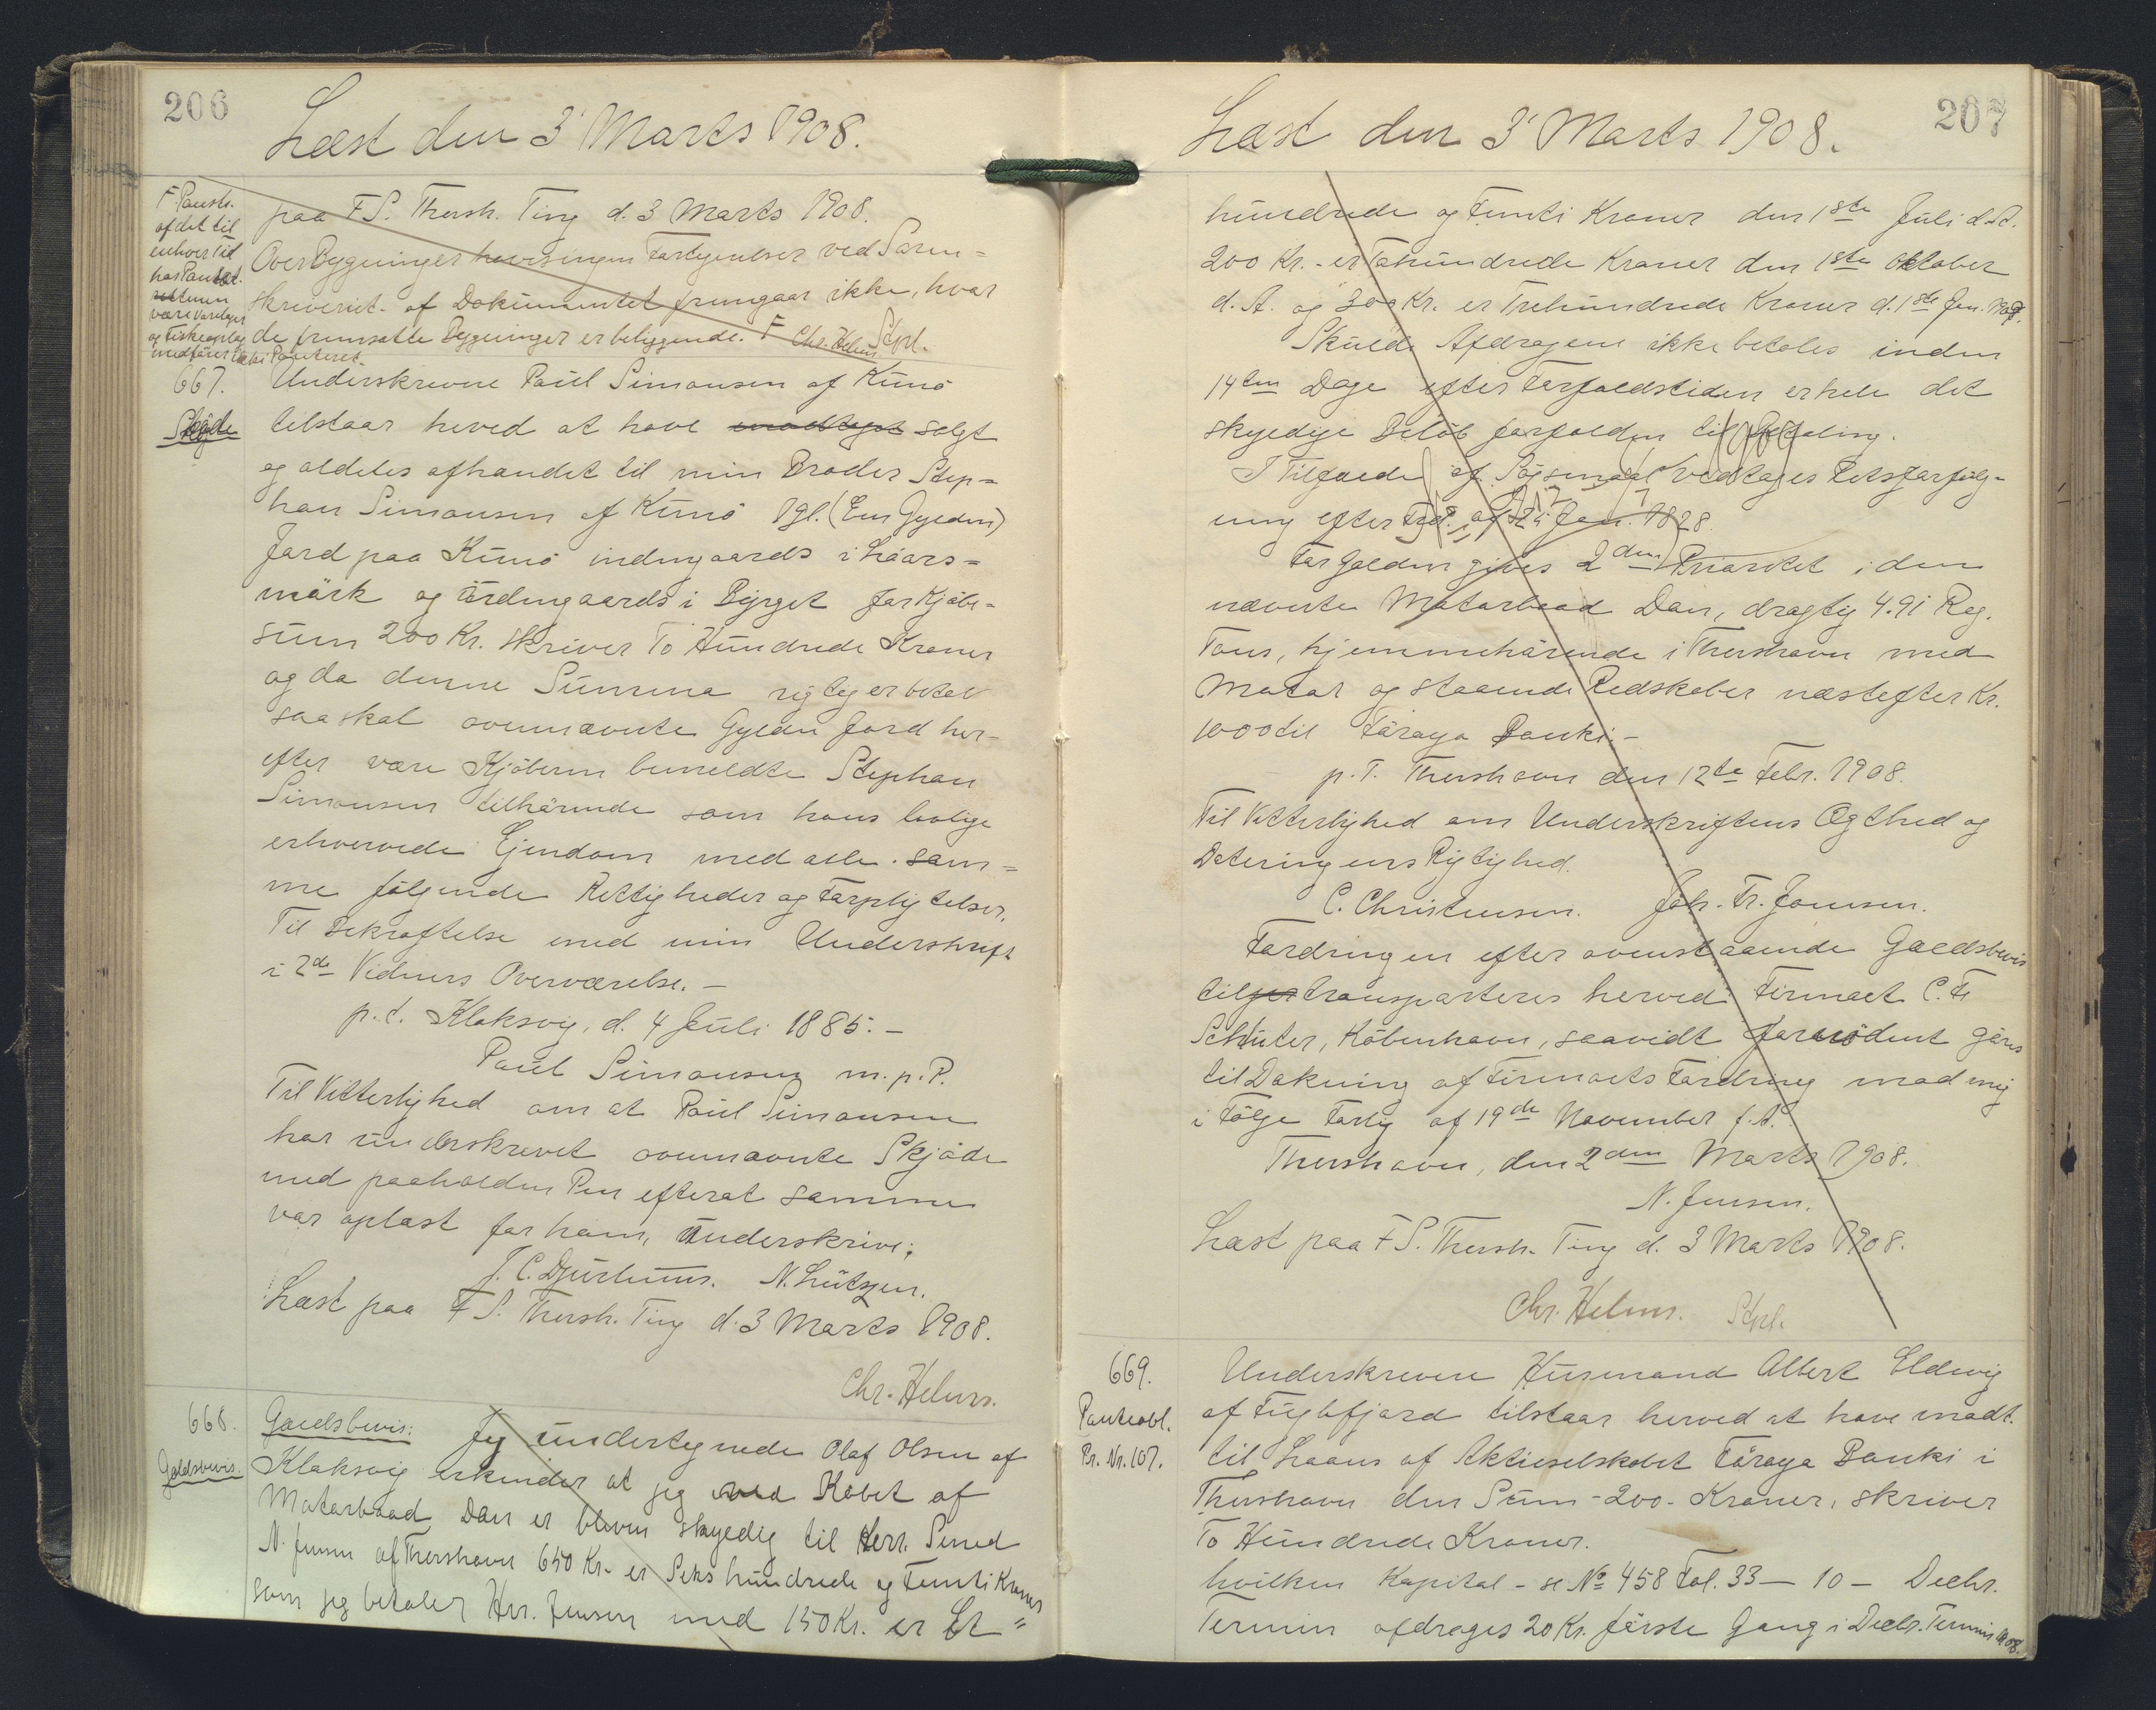 206
Læst den 3' Marts 1908.
F Panteh.
af det til
enhver Tid
has Pantet.
være Varelager
og Fiskeoplag
medfører ikke i Panteret.
paa F S. Thorsh. Ting d. 3 Marts 1908.
Over Bygninger haves ingen Fortegnelser ved Soren=
skriveriet. af Dokumentet fremgaar ikke, hvor
de fremsatte Bygninger er beliggende. F Chr. Helms Stpl.
667.
Skjøde
Underskrevne Poul Simonsen af Kunö
tilstaar herved at have modtaget solgt
og aldeles afhændet til min Broder Step=
han Simonsen af Kunö 1gl. (Een Gylden)
Jord paa Kunö indengaards i Háars=
mørk og údengaards i Býrget for Kjöbe=
súm 200 Kr. skriver To Húndrede Kroner
og da denne Súmma rigtig er betal
saa skal ovennævnte Gylden Jord her=
efter være Kjöberen bemeldte Stephan
Simonsen tilhörende som hans lovlige
erhvervede Ejendom med alle sam=
me fölgende Rettigheder og Forpligtelser.
Til Bekræftelse med min Underskrift
i 2de Vidners Overværelse. –
p. t. Klaksvig, d. 4 Júli 1885. –
Poúl Simonsen m. p. P.
Til Vitterlighed om at Poúl Simonsen
har únderskrevet ovennævnte Skjöde
med paaholden Pen efterat samme
var oplæst for ham, únderskrive;
J. C. Djúrhúús. N. Lützen.
Læst paa F S. Thorsh. Ting d. 3 Marts 1908.
Chr. Helms.
668.
Gældsbevis.
Gældsbevis: Jeg úndertegnede Olaf Olsen af
Klaksvig erkender at jeg ved Köbet af
Motorbaad Dan er bleven skyldig til Herr. Smed
N. Jensen af Thorshavn 650 Kr. er Seks húndrede og Femti Kroner
som jeg betaler Hr. Jensen med 150 Kr. er Et "
207
Læst den 3' Marts 1908.
húndrede og Femti Kroner den 1ste Júli d. A.
200 Kr. - er Tohúndrede Kroner den 1ste Oktober
d. A. og 300 Kr. er Trehúndrede Kroner d. 1ste Jan. 1909.
Skúlde Afdragene ikke betales inden
14ten Dage efter Forfaldstiden er hele det
skyldige Beløb forfalden til Betaling.
I Tilfælde af Søgsmaal vedtages Retsforfølg=
ning efter Frd. af 25 Jan. 1828.
For Gælden gives 2den Prioritet i den
nævnte Motorbaad Dan, drægtig 4.91 Reg.
Tons, hjemmehörende i Thorshavn med
Motor og staaende Redskaber næstefter Kr.
1000 til Föroya Banki. –
p. T. Thorshavn den 12te Febr. 1908.
Til Vitterlighed om Underskriftens Ægthed og
Dateringens Rigtighed.
C. Christensen. Joh. Fr. Joensen.
Fordringen efter ovenstaaende Gældsbevis
tilger transporteres herved Firmaet C. Fr
Schlúter, Köbenhavn, saavidt fornödent göres
til Dækning af Firmaets Fordring mod mig
i Følge Forlig af 19de November f. A.
Thorshavn, den 2den Marts 1908.
N. Jensen.
Læst paa F S. Thorsh. Ting d. 3 Marts 1908.
Chr. Helms. Stpl.
669.
Panteobl.
Pr. Nr. 107.
Underskrevne Húsmand Albert Eldevig
af Fúglefjord tilstaar herved at have modt.
til Laans af Aktieselskabet Föroya Banki i
Thorshavn den Súm - 200 - Kroner, skriver
To Húndrede Kroner.
hvilken Kapital - se № 458 Fol. 33 – 10 – Decbr.
Termin afdrages 20 Kr. første Gang i Decbr. Termin 1908.